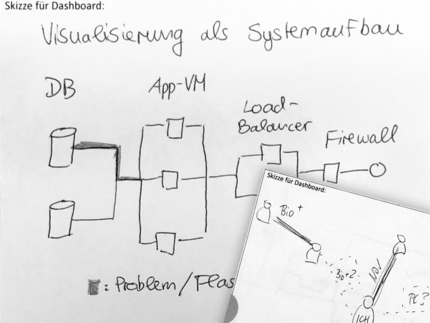 Skizze für Dashboard:
Visualisierung als Systemaufbau
DB
App-VM
Load-
Balancer
Firewall
: Problem/Flas
Skizze für Dashboard:
Bio+
ICH